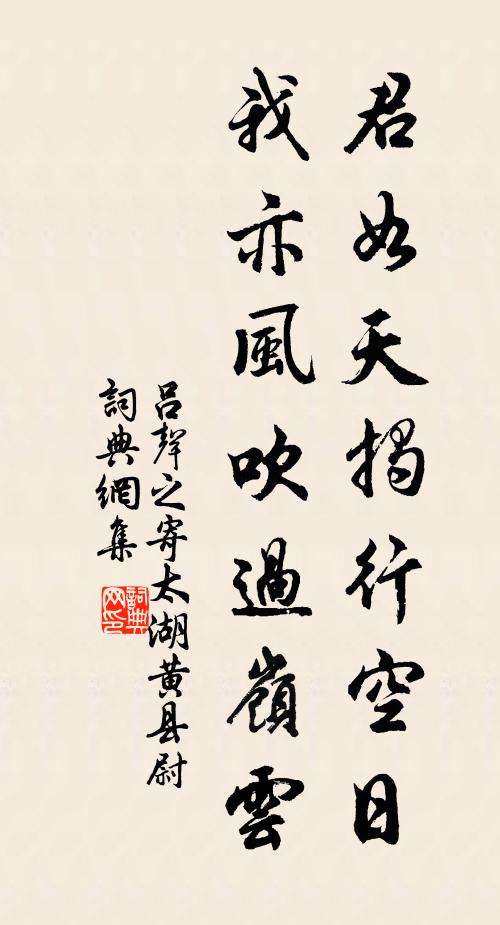 君如天揭行空日
我亦風吹過嶺雲
吕聲之寄太湖黄县尉
詞典網集
詞典
网印